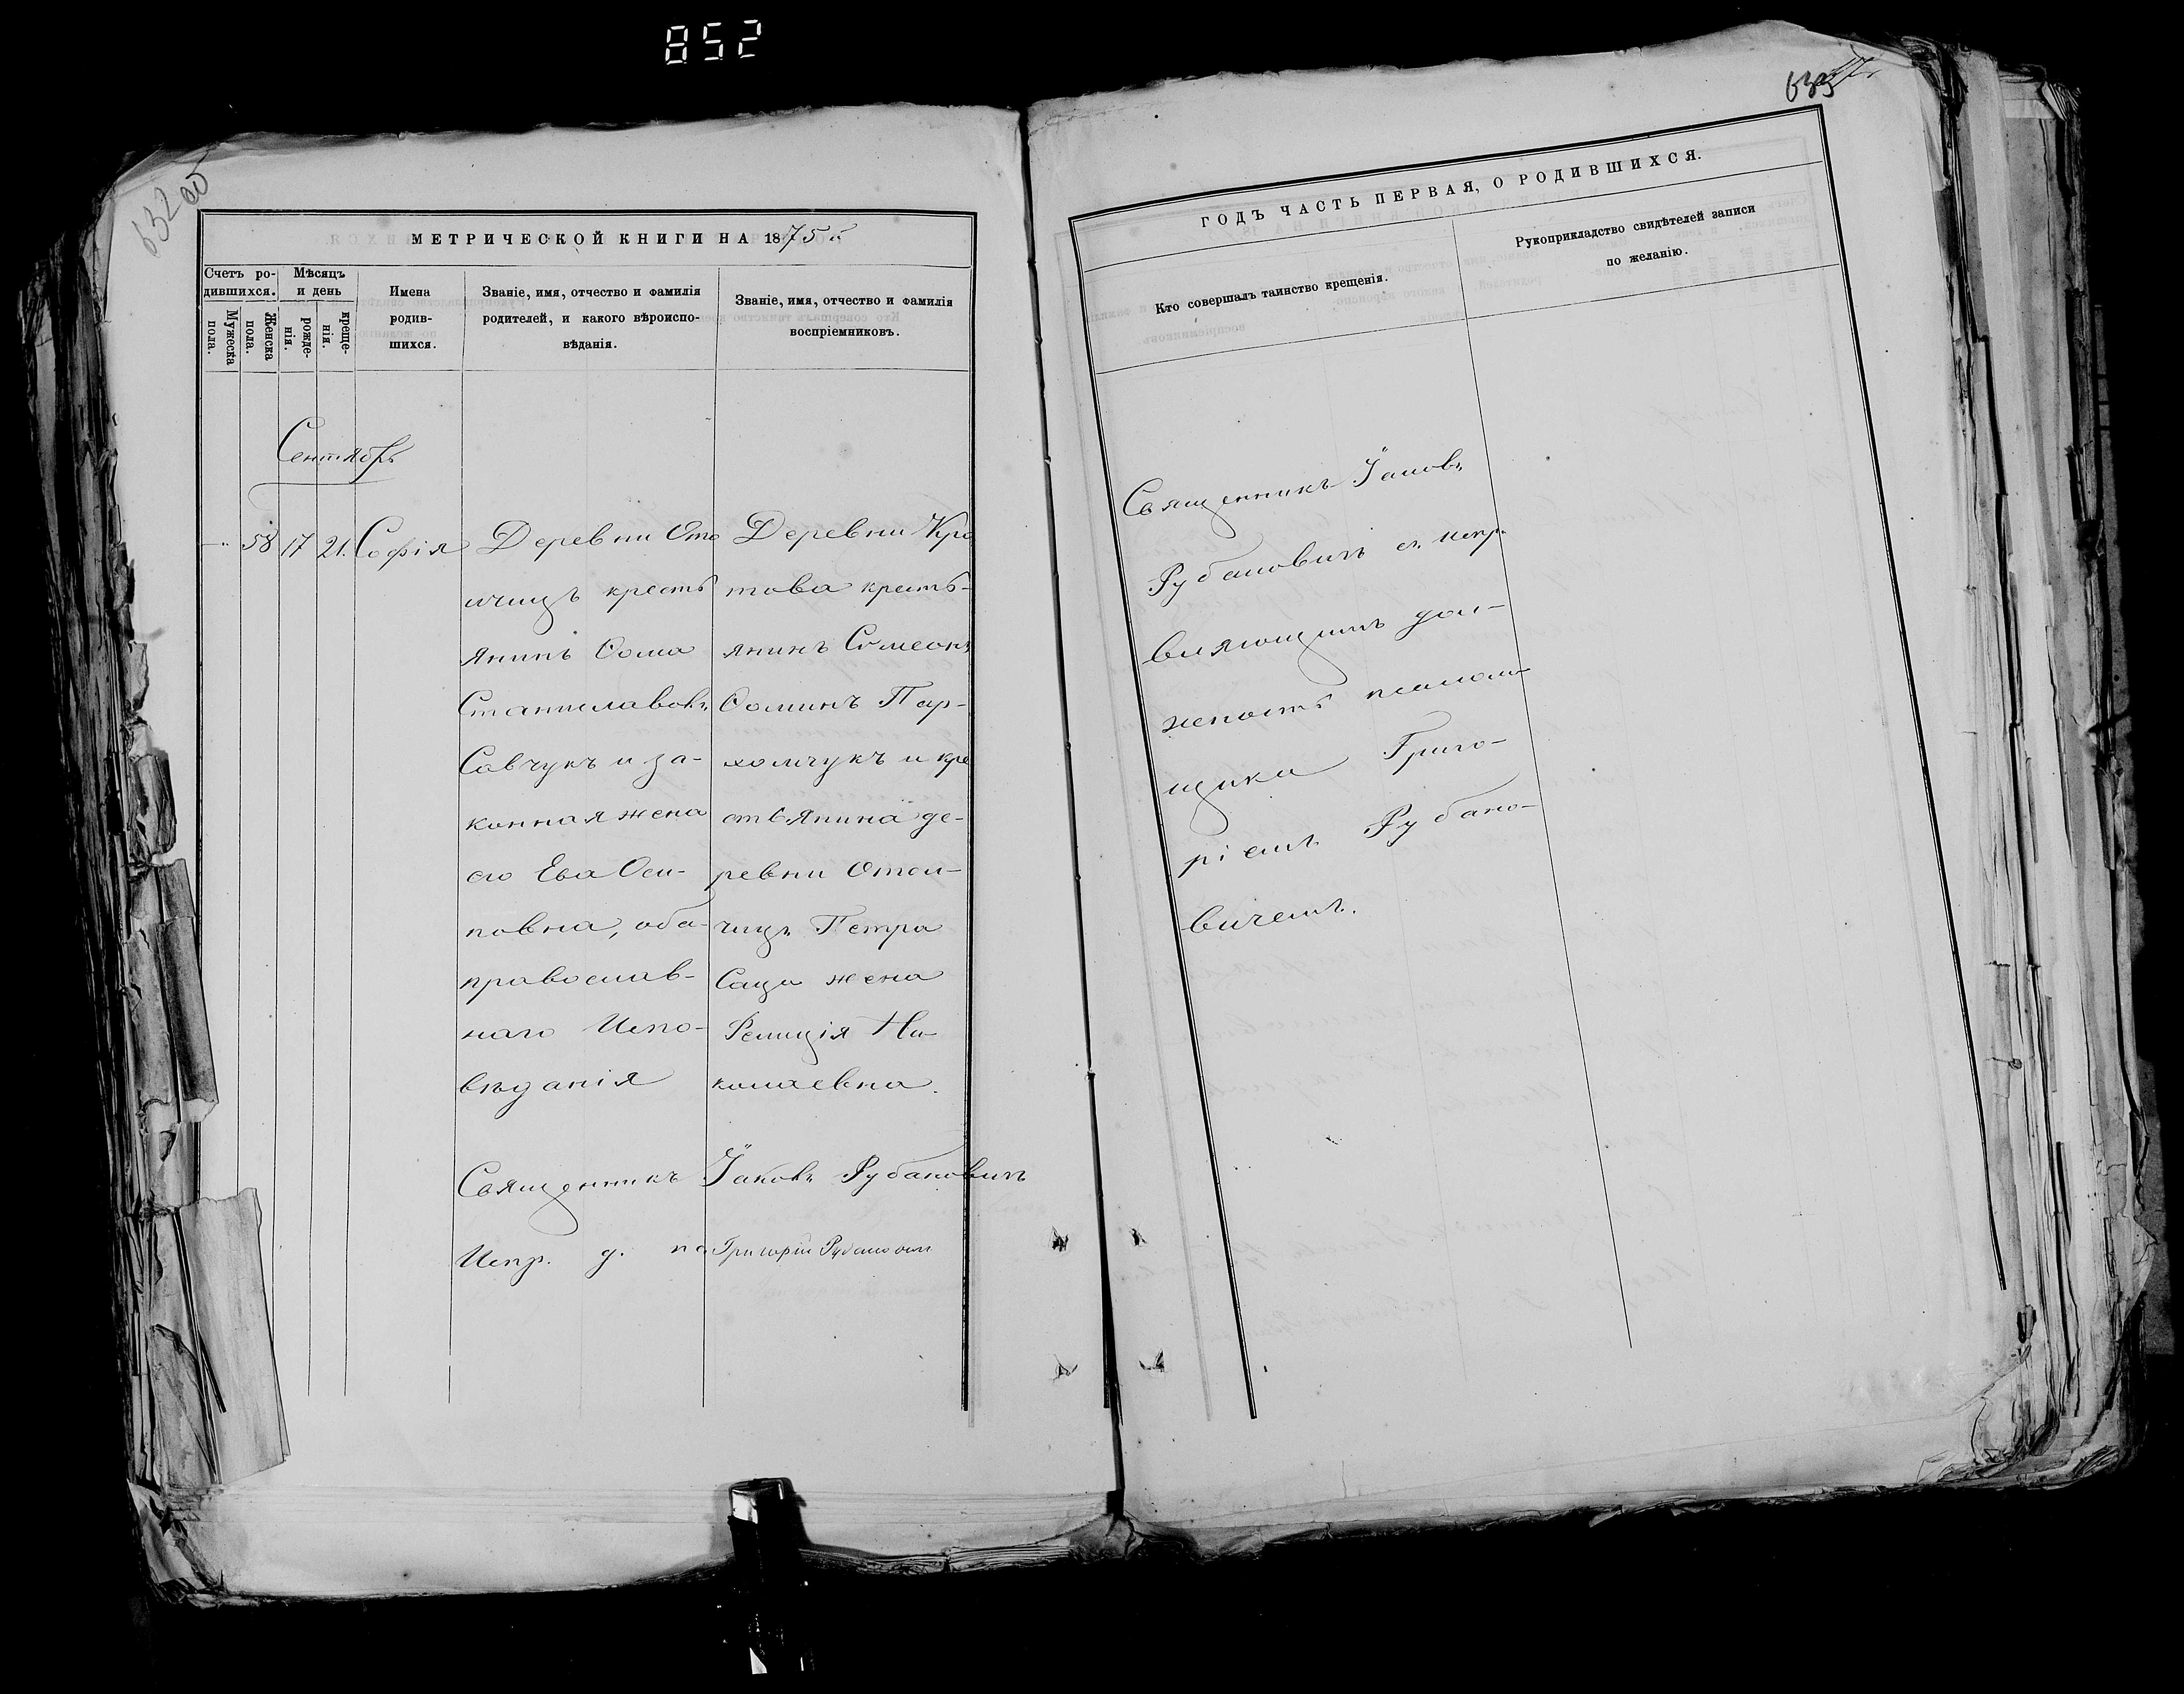 852
632 об
633
МЕТРИЧЕСКОЙ КНИГИ НА 1875й
Счетъ ро-
дившихся.
Мужеска
пола.
Женска
пола.
Мѣсяцъ
и день
рожде-
нія.
креще-
нія.
Имена
родив-
шихся.
Званіе, имя, отчество и фамилія
родителей, и какого вѣроиспо-
вѣданія.
Званіе, имя, отчество и фамилія
воспріемниковъ.
Сентябрь
58 17 21. Софія
Деревни Ото
лчицъ кресть
янинъ Ѳома
Станиславовъ
Савчукъ и за-
конная жена
его Ева Оси-
повна, оба
православ-
наго Испо-
вѣданія
Деревни Кро
това кресть-
янинъ Симеонъ
Ѳоминъ Пар-
хомчукъ и кре
стьянина де-
ревни Отол-
чицъ Петра
Саца жена
Фелиція Ни-
колаевна.
Священникъ Іаковъ Рубановичъ
Испр. д. пс. Григорій Рубановичъ
ГОДЪ ЧАСТЬ ПЕРВАЯ, О РОДИВШИХСЯ.
Кто совершалъ таинство крещенія.
Рукоприкладство свидѣтелей записи
по желанію.
Священникъ Іаковъ
Рубановичъ съ испр.
вляющимъ дол-
жность псалом-
щика Григо-
ріемъ Рубано-
вичемъ.